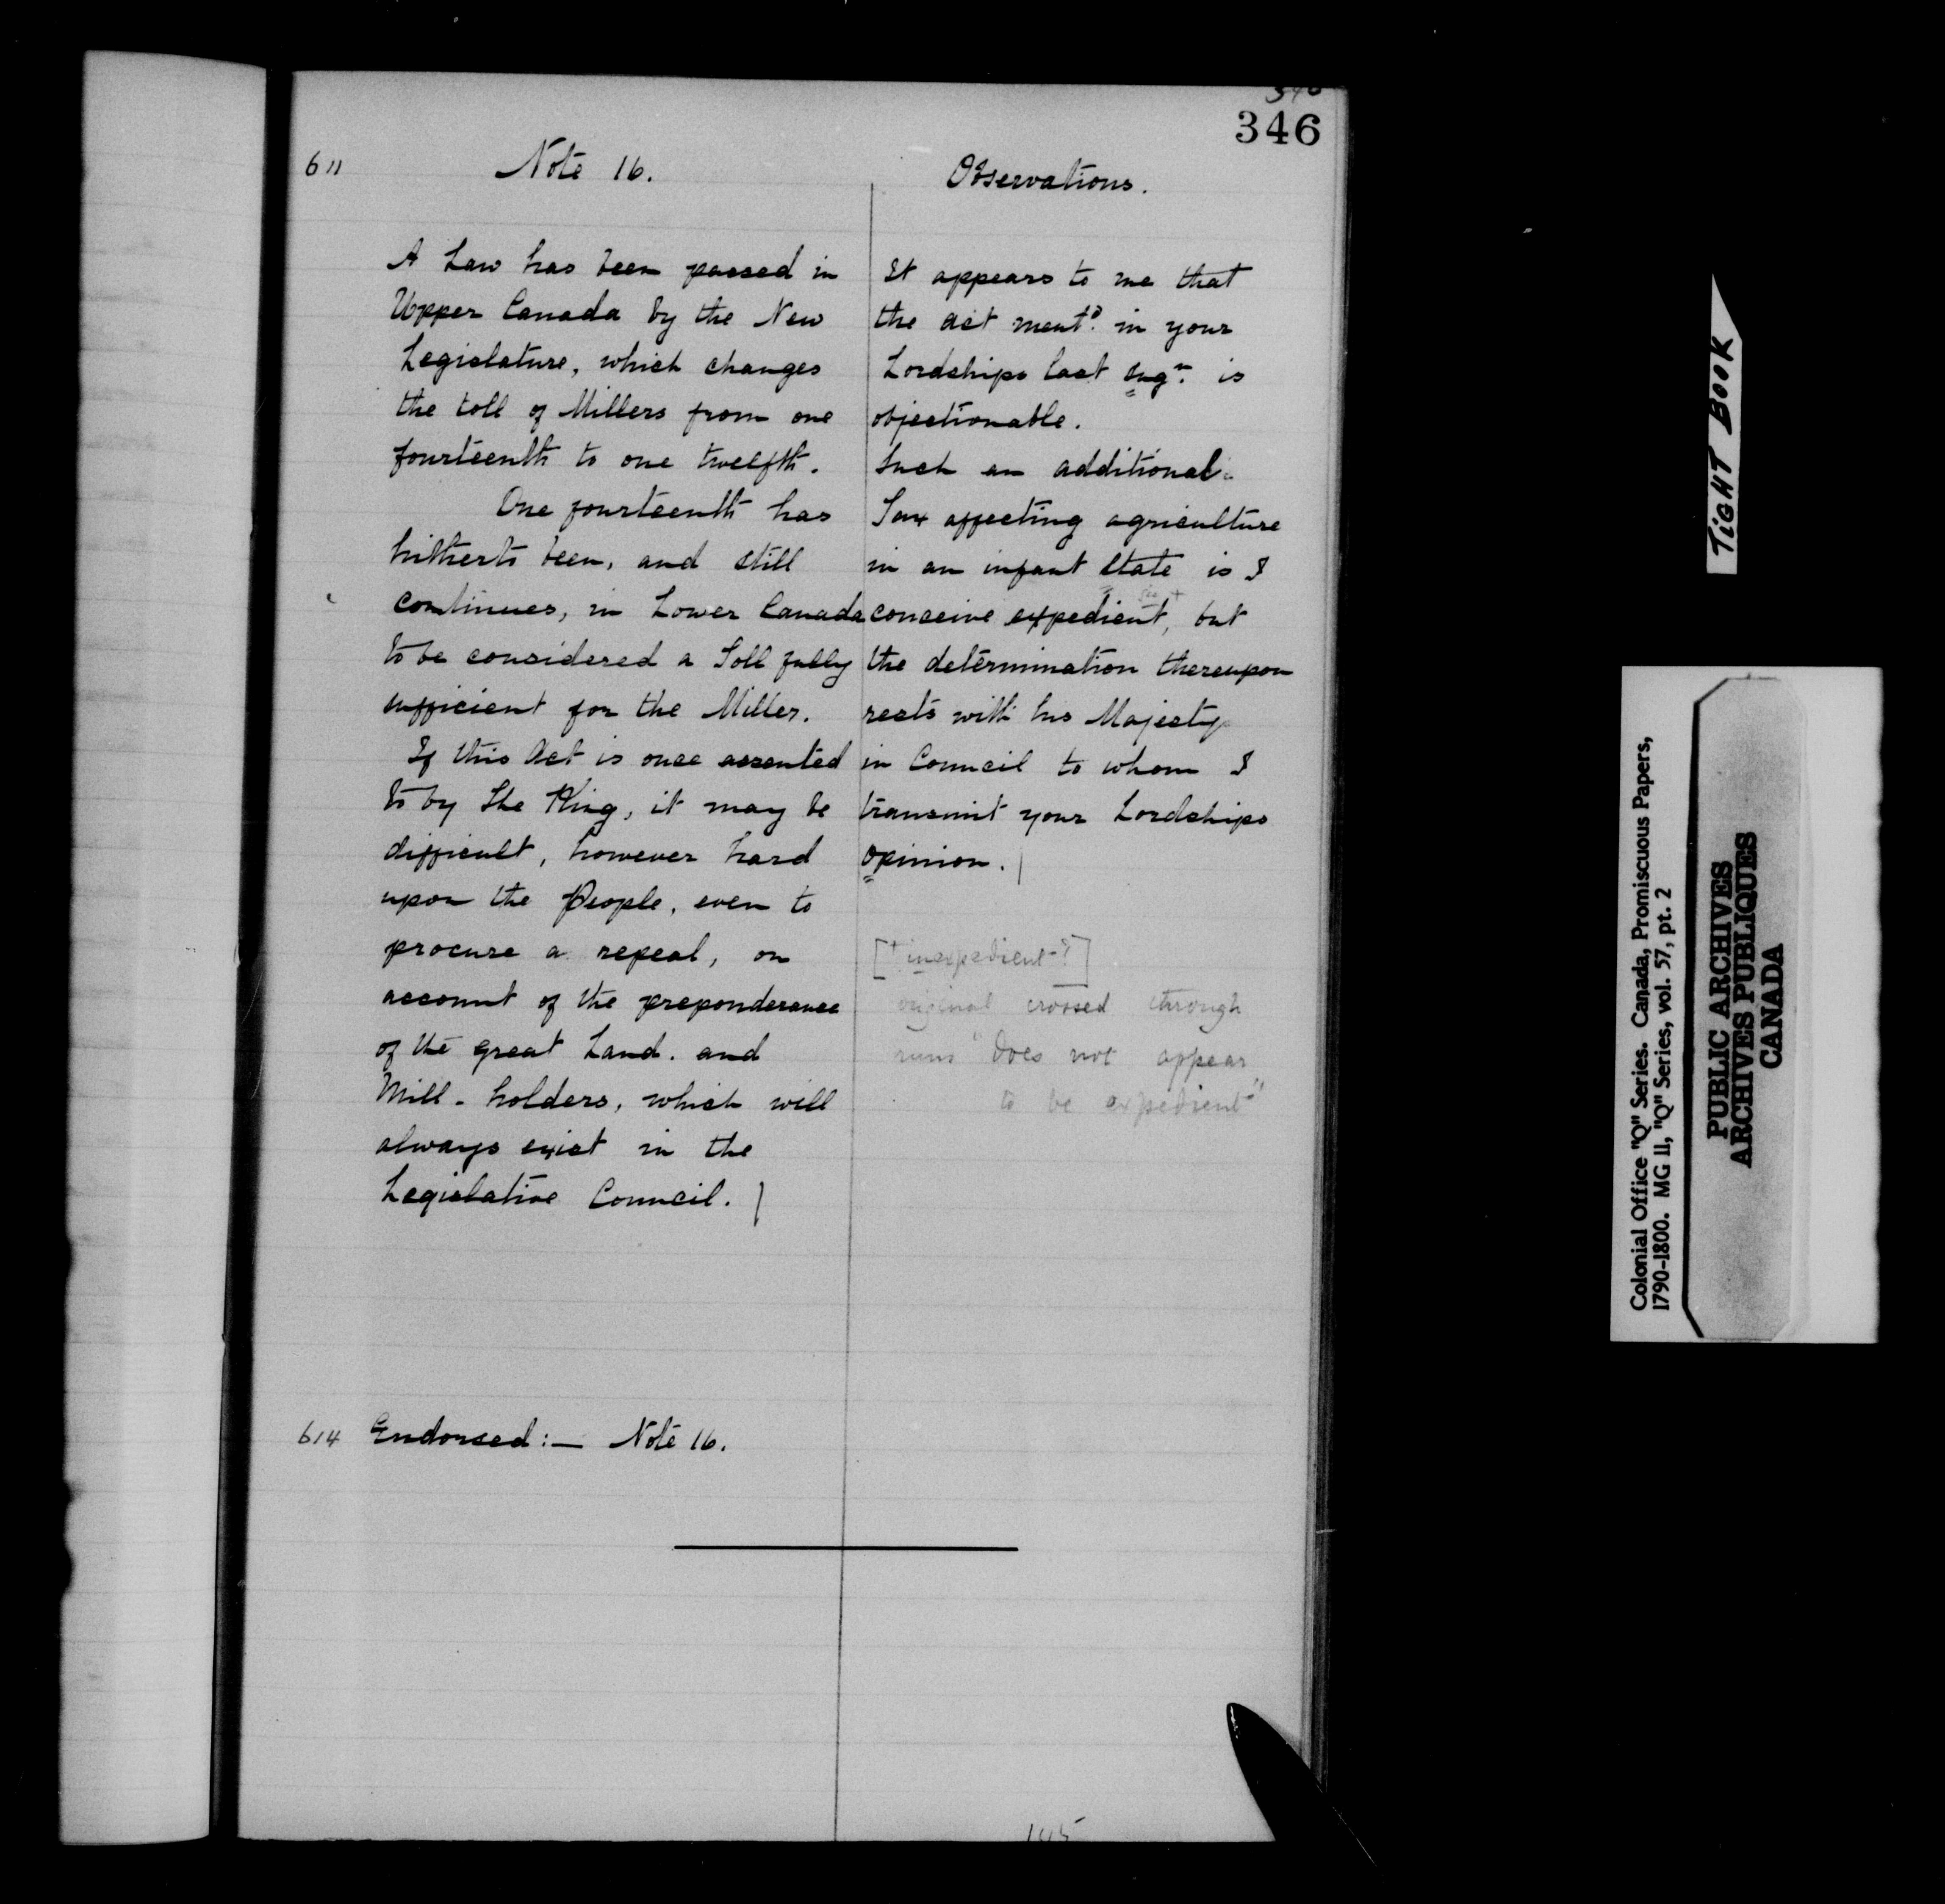 346
346
611
Note 16.
A Law has been passed in
Upper Canada by the New
Legislature, which changes
the toll of Millers from one
fourteenth to one twelfth.
One fourteenth has
hitherto been, and still
continues, in Lower Canada
to be considered a Toll fully
sufficient for the Miller.
If this Act is once assented
to by the King, it may be
difficult, however hard
upon the People, even to
procure a repeal, on
account of the preponderance
of the great Land. and
Mill-holders, which will
always exist in the
Legislative Council.
Observations.
It appears to me that
the act mentd. in your
Lordships last sugn. is
objectionable.
Such an additional
Tax affecting agriculture
in an infant State is I
see +
conceive expedient, but
the determination thereupon
rests with his Majesty
in Council to whom I
transmit your Lordships
opinion.
[+ inexpedient ?]
original crossed through
runs "does not appear
to be expedient"
614 Endorsed:— Note 16.
TIGHT BOOK
Colonial Office "Q" Series. Canada, Promiscuous Papers,
1790-1800. MG 11, "Q" Series, vol. 57, pt. 2
PUBLIC ARCHIVES
ARCHIVES PUBLIQUES
CANADA